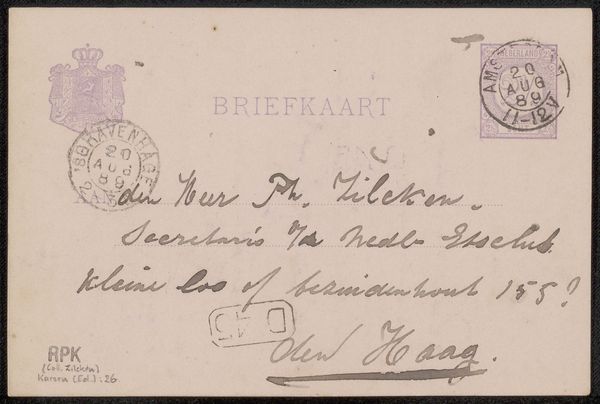 NEDERLAND
AMSTERDAM
20
AUG
89
11-12V
BRIEFKAART
'SGRAVENHAGE
20
AUG
89
den Heer Ph. Zilcken.
Secretaris v/d Nedl. Etsclub.
Kleine Loo of bezuidenhout 155?
D
43
den Haag.
RPK
(Coll. Zilcken)
Karsen (Ed.): 26